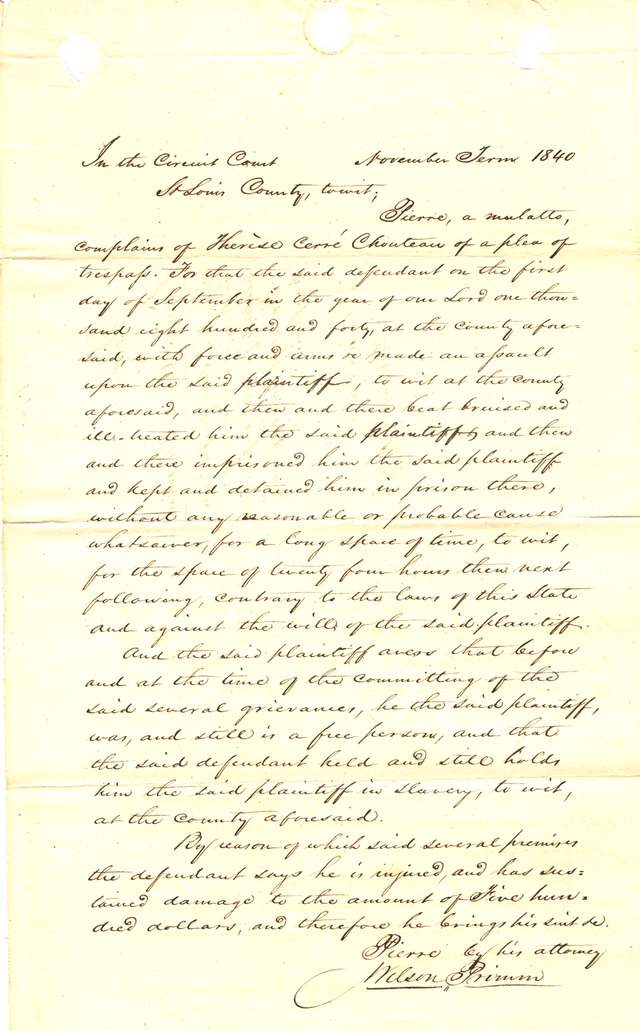 In the Circuit Court November Term 1840
St Louis County, towit;
Pierre, a mulatto,
complains of Therèse Cerré Chouteau of a plea of
trespass. For that the said defendant on the first
day of September in the year of our Lord one thou=
sand eight hundred and forty, at the county afore=
said, with force and arms &c made an assault
upon the said plaintiff, to wit at the county
aforesaid, and then and there beat bruised and
ill-treated him the said plaintiff, and then
and there imprisoned him the said plaintiff
and kept and detained him in prison there,
without any reasonable or probable cause
whatsoever, for a long space of time, to wit,
for the space of twenty four hours then next
following, contrary to the laws of this State
and against the will of the said plaintiff.
And the said plaintiff avers that before
and at the time of the committing of the
said several grievances, he the said plaintiff,
was, and still is a free person, and that
the said defendant held and still holds
him the said plaintiff in slavery, to wit,
at the county aforesaid.
By reason of which said several premises
the defendant says he is injured, and has sus=
tained damage to the amount of Five hun=
dred dollars, and therefore he brings his suit &c.
Pierre by his attorney
Wilson Primm